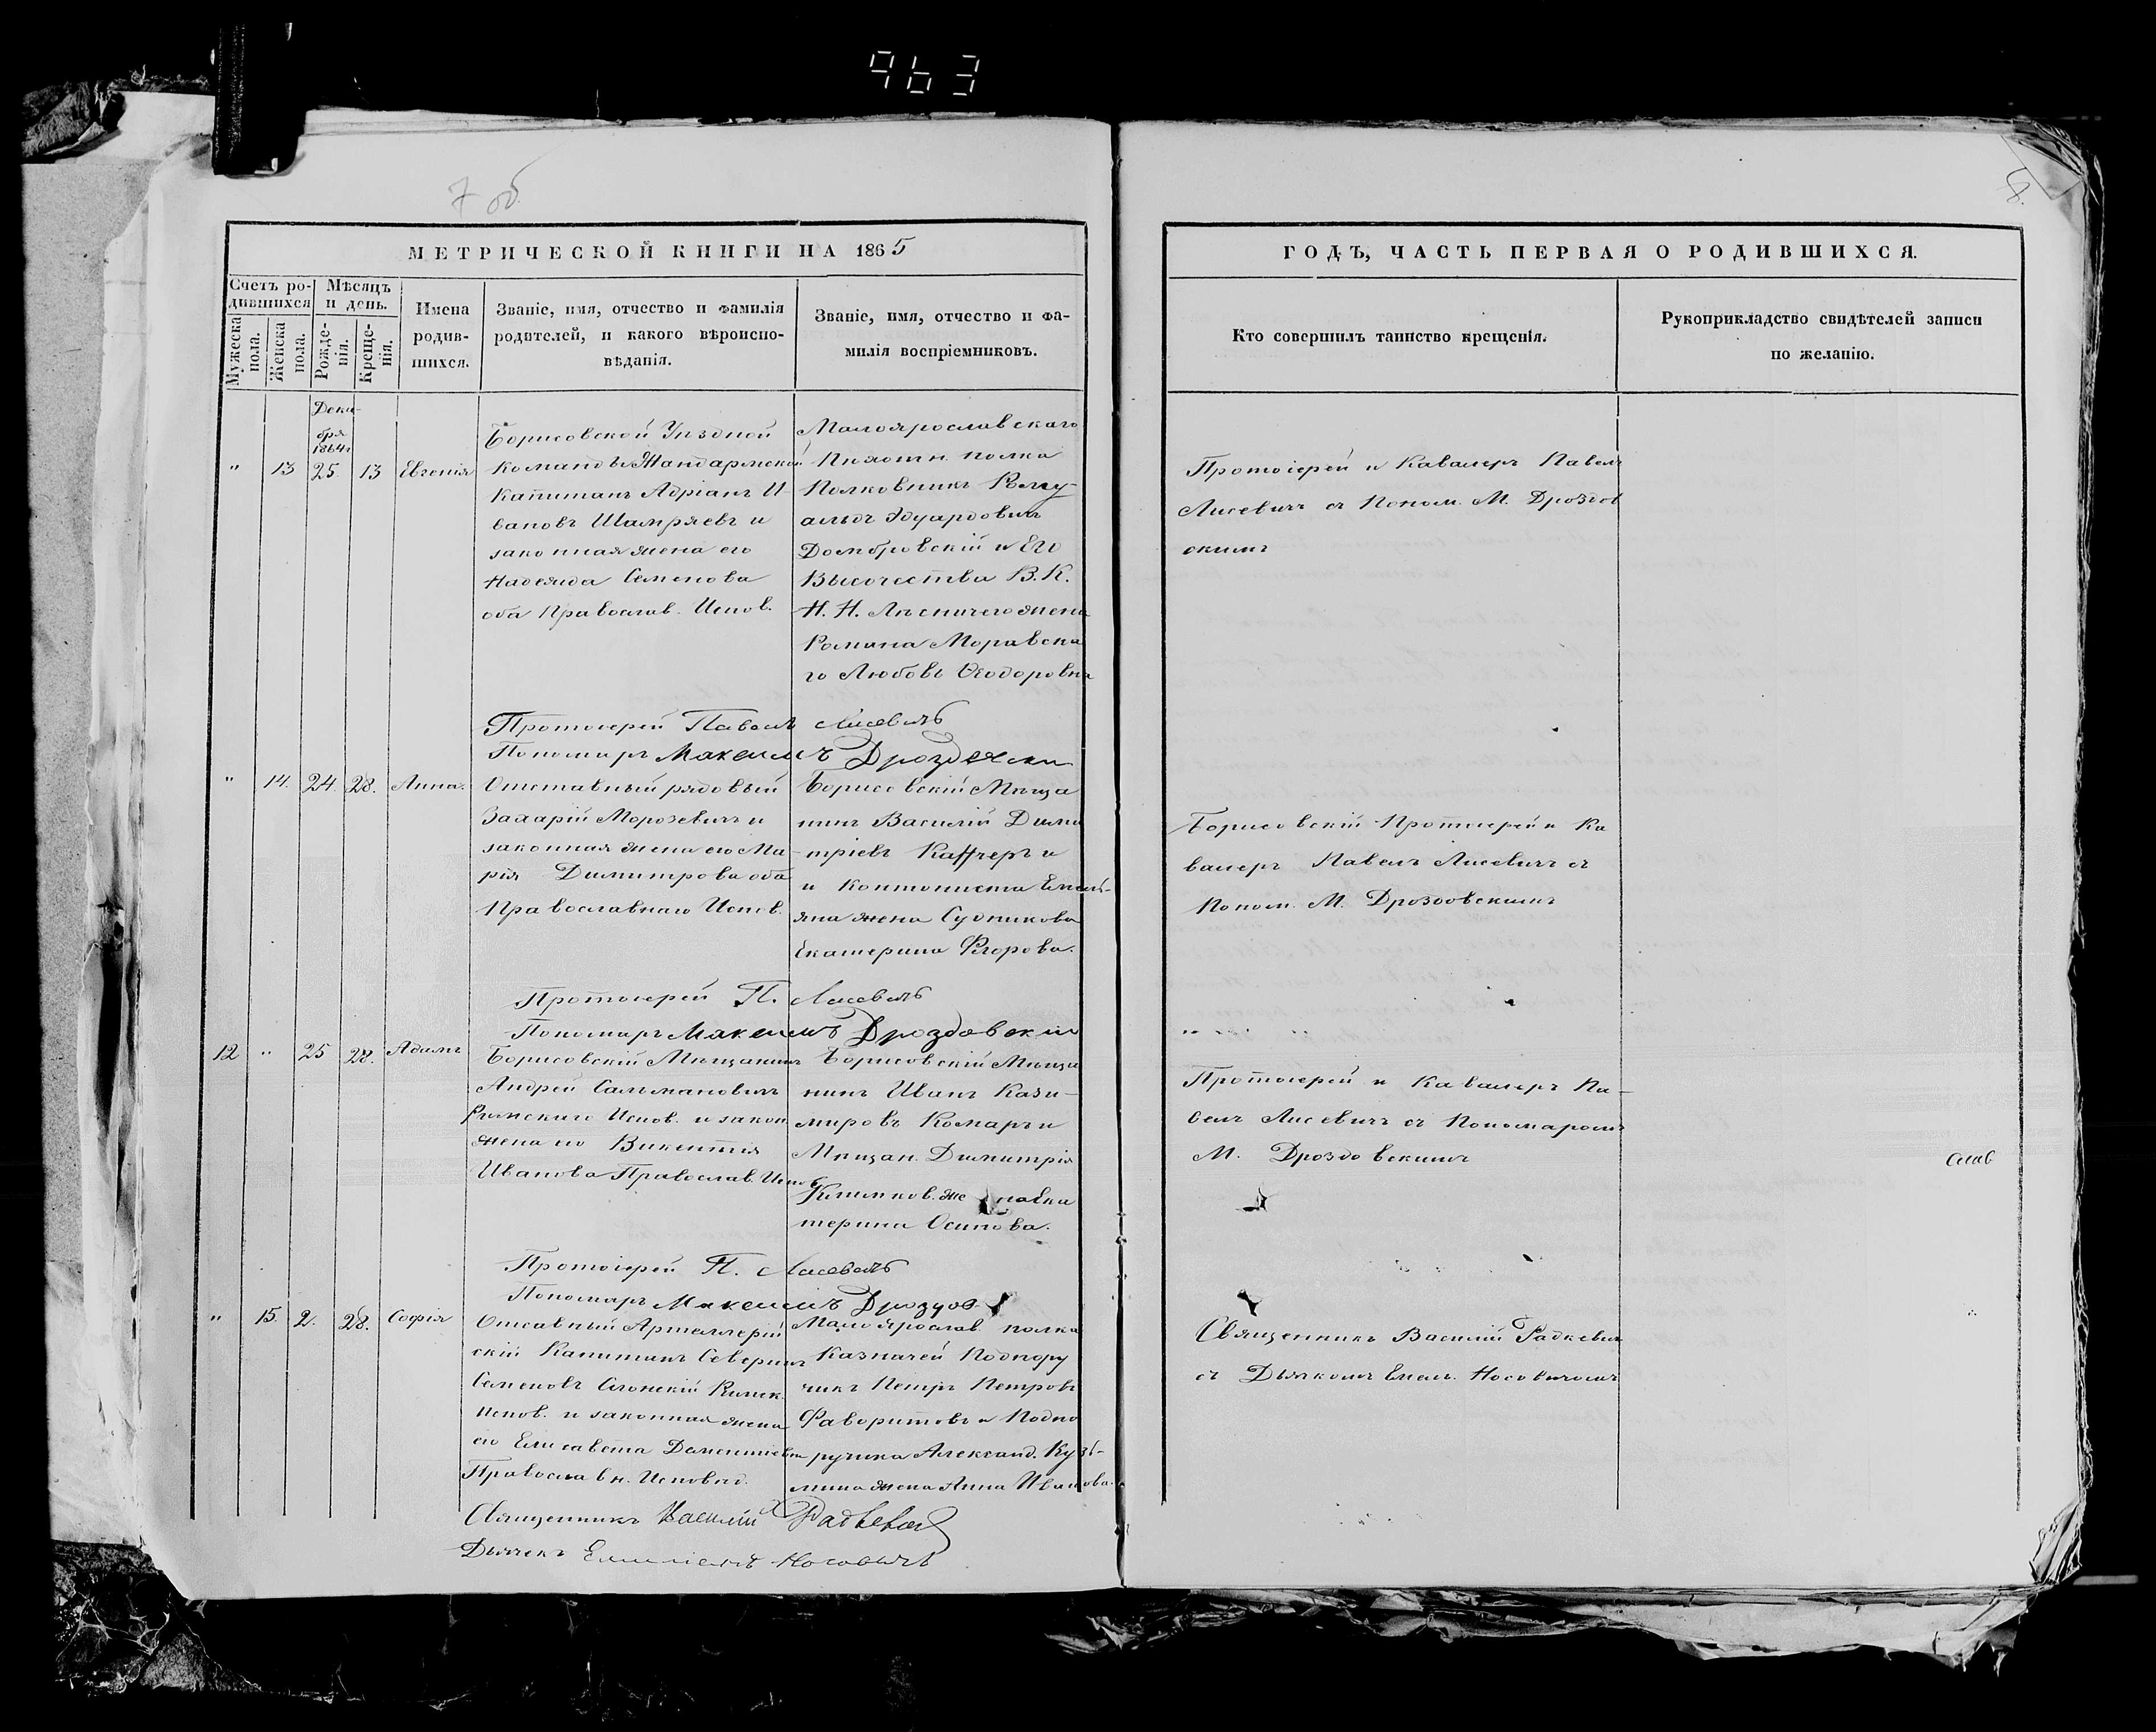 963
7 об.
8.
МЕТРИЧЕСКОЙ КНИГИ НА 1865
ГОДЪ, ЧАСТЬ ПЕРВАЯ О РОДИВШИХСЯ.
Счетъ ро-
дившихся
Мужеска
пола.
Женска
пола.
Мѣсяцъ
и день.
Рожде-
нія.
Креще-
нія.
Имена
родив-
шихся.
Званіе, имя, отчество и фамилія
родителей, и какого вѣроиспо-
вѣданія.
Званіе, имя, отчество и фа-
милія воспріемниковъ.
Кто совершилъ таинство крещенія.
Рукоприкладство свидѣтелей записи
по желанію.
Дека-
бря
1864г
" 13 25. 13 Евгенія
Борисовской Уѣздной
команды Жандармской
Капитанъ Адріанъ И-
вановъ и
законная жена его
Надежда Семенова
оба Православ. Испов.
Малоярославскаго
Пѣхотн. полка
Полковникъ Рому-
альдъ Эдуардовичъ
Домбровскій и Его
Высочества В. К.
Н. Н. Лѣсничего жена
Романа Моравска
го Любовь Ѳеодоровна
Протоіерей и Кавалеръ Павелъ
Лисевичъ съ Поном. М. Дроздов
скимъ
Протоіерей Павелъ Лисевичъ
Пономарь Максимъ Дроздовски
" 14. 24. 28. Анна.
Отставный рядовый
Захарій Морозевичъ и
законная жена его Ма-
рія Димитрова оба
Православнаго Испов.
Борисовскій Мѣща
нинъ Василій Дими
тріевъ и
и Кантониста Емель-
яна жена Судникова
Екатерина Ѳедорова.
Борисовскій Протоіерей и Ка
валеръ Павелъ Лисевичъ съ
Поном. М. Дроздовскимъ
Протоіерей П. Лисевичъ
Пономарь Максимъ Дроздовскій
12 " 25 28. Адамъ
Борисовскій Мѣщанинъ
Андрей Сальмановичъ
Римскаго Испов. и закон
жена его Викентія
Иванова Православ. Испов.
Борисовскій Мѣща
нинъ Иванъ Кази-
міровъ Комаръ и
Мѣщан. Димитрія
же на Ека
терина Осипова.
Протоіерей и Кавалеръ Па-
велъ Лисевичъ съ Пономаромъ
М. Дроздовскимъ
Протоіерей П. Лисевичъ
Пономарь Максимъ Дроздов
" 15. 2. 28. Софія
Отсавный Артиллерій
скій Капитанъ Северинъ
Семеновъ Слонскій Римск.
Испов. и законная жена
его Елисавета Дементіевна
Православн. Исповѣд.
Малоярослав. полка
Казначей Подпору
чикъ Петръ Петровъ
Фаворитовъ и Подпо
ручика Александ. Кузь-
мина жена Анна Иванова.
Священникъ Василій Радкевич
съ Дьякомъ Емел. Носовичомъ
Священникъ Василій Радкевичъ
Дьячекъ Емиліанъ Носовичъ